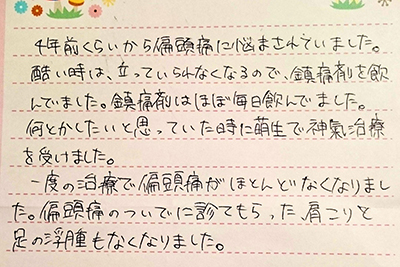 4年前くらいから偏頭痛に悩まされていました。
酷い時は、立っていられなくなるので、鎮痛剤を飲
んでました。鎮痛剤はほぼ毎日飲んでました。
何とかしたいと思っていた時に萌生で神氣治療
を受けました。
一度の治療で偏頭痛がほとんどなくなりまし
た。偏頭痛のついでに診てもらった、肩こりと
足の浮腫もなくなりました。